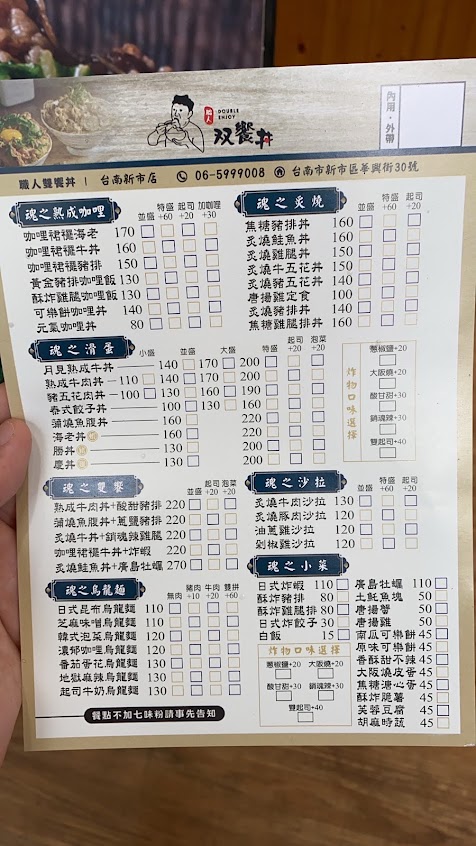 內用・外帶
職人
DOUBLE ENJOY
双饗丼
職人雙饗丼 | 台南新市店 06-5999008 台南市新市區華興街30號
魂之熟成咖哩 並盛 特盛+60 起司+20 加咖哩+30
咖哩裙襬海老 170
咖哩裙襬牛丼 160
咖哩裙襬豬排 150
黃金豬排咖哩飯 130
酥炸雞腿咖哩飯 130
可樂餅咖哩丼 140
元氣咖哩丼 80
魂之炙燒 並盛 特盛+60 起司+20
焦糖豬排丼 160
炙燒鮭魚丼 160
炙燒雞腿丼 150
炙燒牛五花丼 150
炙燒豬五花丼 140
唐揚雞定食 100
炙燒豬排丼 140
焦糖雞腿排丼 160
魂之滑蛋 小盛 並盛 大盛 特盛 起司+20 泡菜+20
月見熟成牛丼 140 170 200
熟成牛肉丼 110 140 170 200
豬五花肉丼 100 130 160 190
泰式餃子丼 100 130 160
蒲燒魚腹丼 160 220
海老丼 160 220
勝丼 130 200
慶丼 130 200
炸物口味選擇
蔥椒鹽+20
大阪燒+20
酸甘甜+30
銷魂辣+30
雙起司+40
魂之雙饗 並盛 起司+20 泡菜+20
熟成牛肉丼+酸甜豬排 220
蒲燒魚腹丼+蔥鹽豬排 220
炙燒牛丼+銷魂辣雞腿 220
咖哩裙襬牛丼+炸蝦 220
炙燒鮭魚丼+廣島牡蠣 270
魂之沙拉 並盛 特盛+60 起司+20
炙燒牛肉沙拉 130
炙燒豚肉沙拉 120
油蔥雞沙拉 120
剁椒雞沙拉 120
魂之烏龍麵 無肉 豬肉+10 牛肉+20 雙拼+20
日式昆布烏龍麵 110
芝麻味噌烏龍麵 110
韓式泡菜烏龍麵 120
濃郁咖哩烏龍麵 120
番茄蛋花烏龍麵 130
地獄麻辣烏龍麵 130
起司牛奶烏龍麵 130
餐點不加七味粉請事先告知
魂之小菜
日式炸蝦 110
酥炸豬排 80
酥炸雞腿排 80
日式炸餃子 30
白飯 15
炸物口味選擇
蔥椒鹽+20 大阪燒+20
酸甘甜+30 銷魂辣+30
雙起司+40
廣島牡蠣 110
土魠魚塊 50
唐揚蟹 50
唐揚雞 50
南瓜可樂餅 45
原味可樂餅 45
香酥甜不辣 45
大阪燒皮蛋 45
焦糖溏心蛋 45
酥炸脆薯 45
芙蓉豆腐 45
胡麻時蔬 45